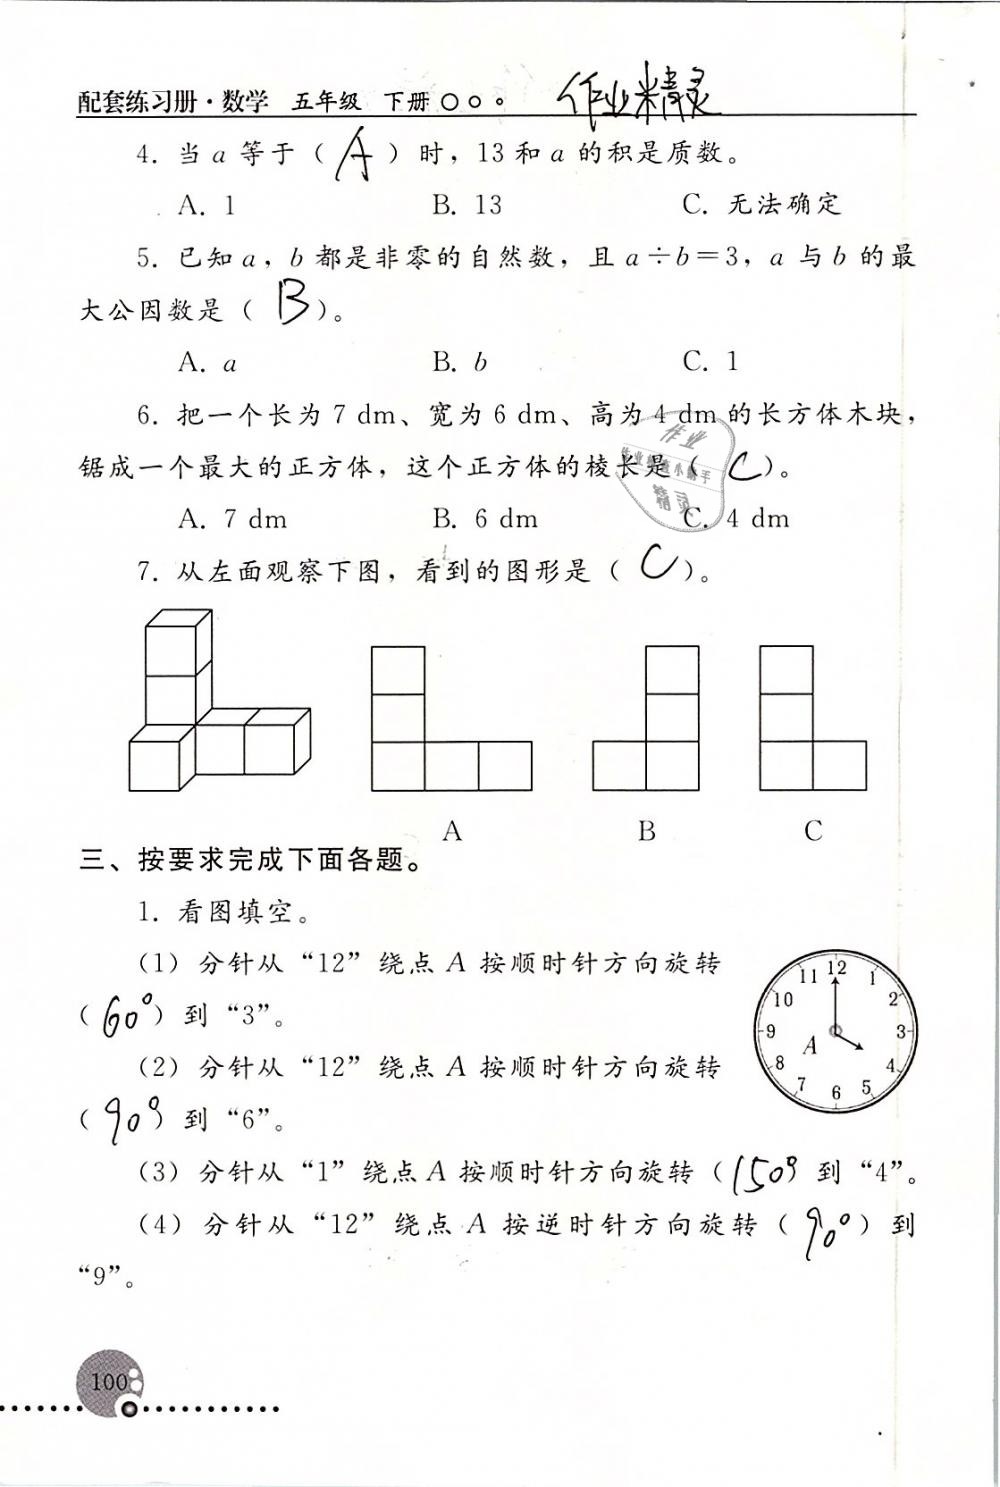 配套练习册·数学 五年级 下册 作业精灵
4. 当 a 等于（ A ）时，13 和 a 的积是质数。
A. 1 B. 13 C. 无法确定
5. 已知 a，b 都是非零的自然数，且 a÷b＝3，a 与 b 的最
大公因数是（ B ）。
A. a B. b C. 1
6. 把一个长为 7 dm、宽为 6 dm、高为 4 dm 的长方体木块，
作业
锯成一个最大的正方体，这个正方体的棱长是（ C ）。
精灵
A. 7 dm B. 6 dm C. 4 dm
7. 从左面观察下图，看到的图形是（ C ）。
A B C
三、按要求完成下面各题。
1. 看图填空。
（1）分针从“12”绕点 A 按顺时针方向旋转
（60°）到“3”。
（2）分针从“12”绕点 A 按顺时针方向旋转
（90°）到“6”。
11 12 1
10 2
9 3
A
8 4
7 6 5
（3）分针从“1”绕点 A 按顺时针方向旋转（150°）到“4”。
（4）分针从“12”绕点 A 按逆时针方向旋转（90°）到
“9”。
100